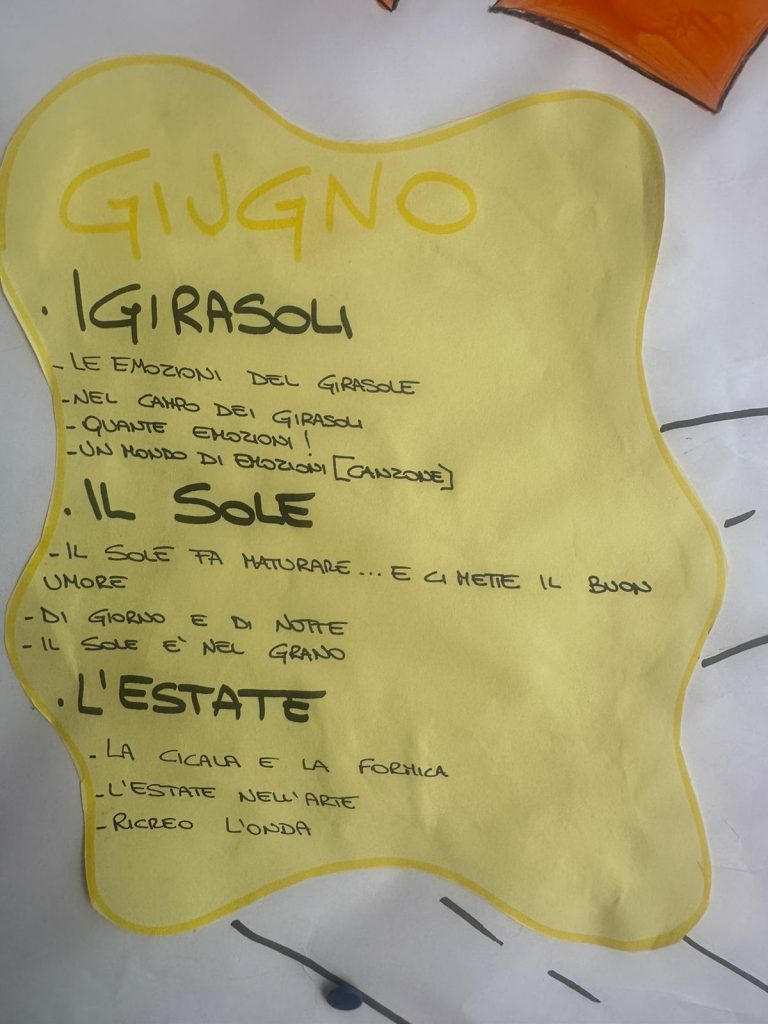 GIUGNO
. I GIRASOLI
- LE EMOZIONI DEL GIRASOLE
- NEL CAMPO DEI GIRASOLI
- QUANTE EMOZIONI!
- UN MONDO DI EMOZIONI [CANZONE]
. IL SOLE
- IL SOLE FA MATURARE... E CI METTE IL BUON
UMORE
- DI GIORNO E DI NOTTE
- IL SOLE E' NEL GRANO
. L'ESTATE
- LA CICALA E LA FORMICA
- L'ESTATE NELL'ARTE
- RICREO L'ONDA